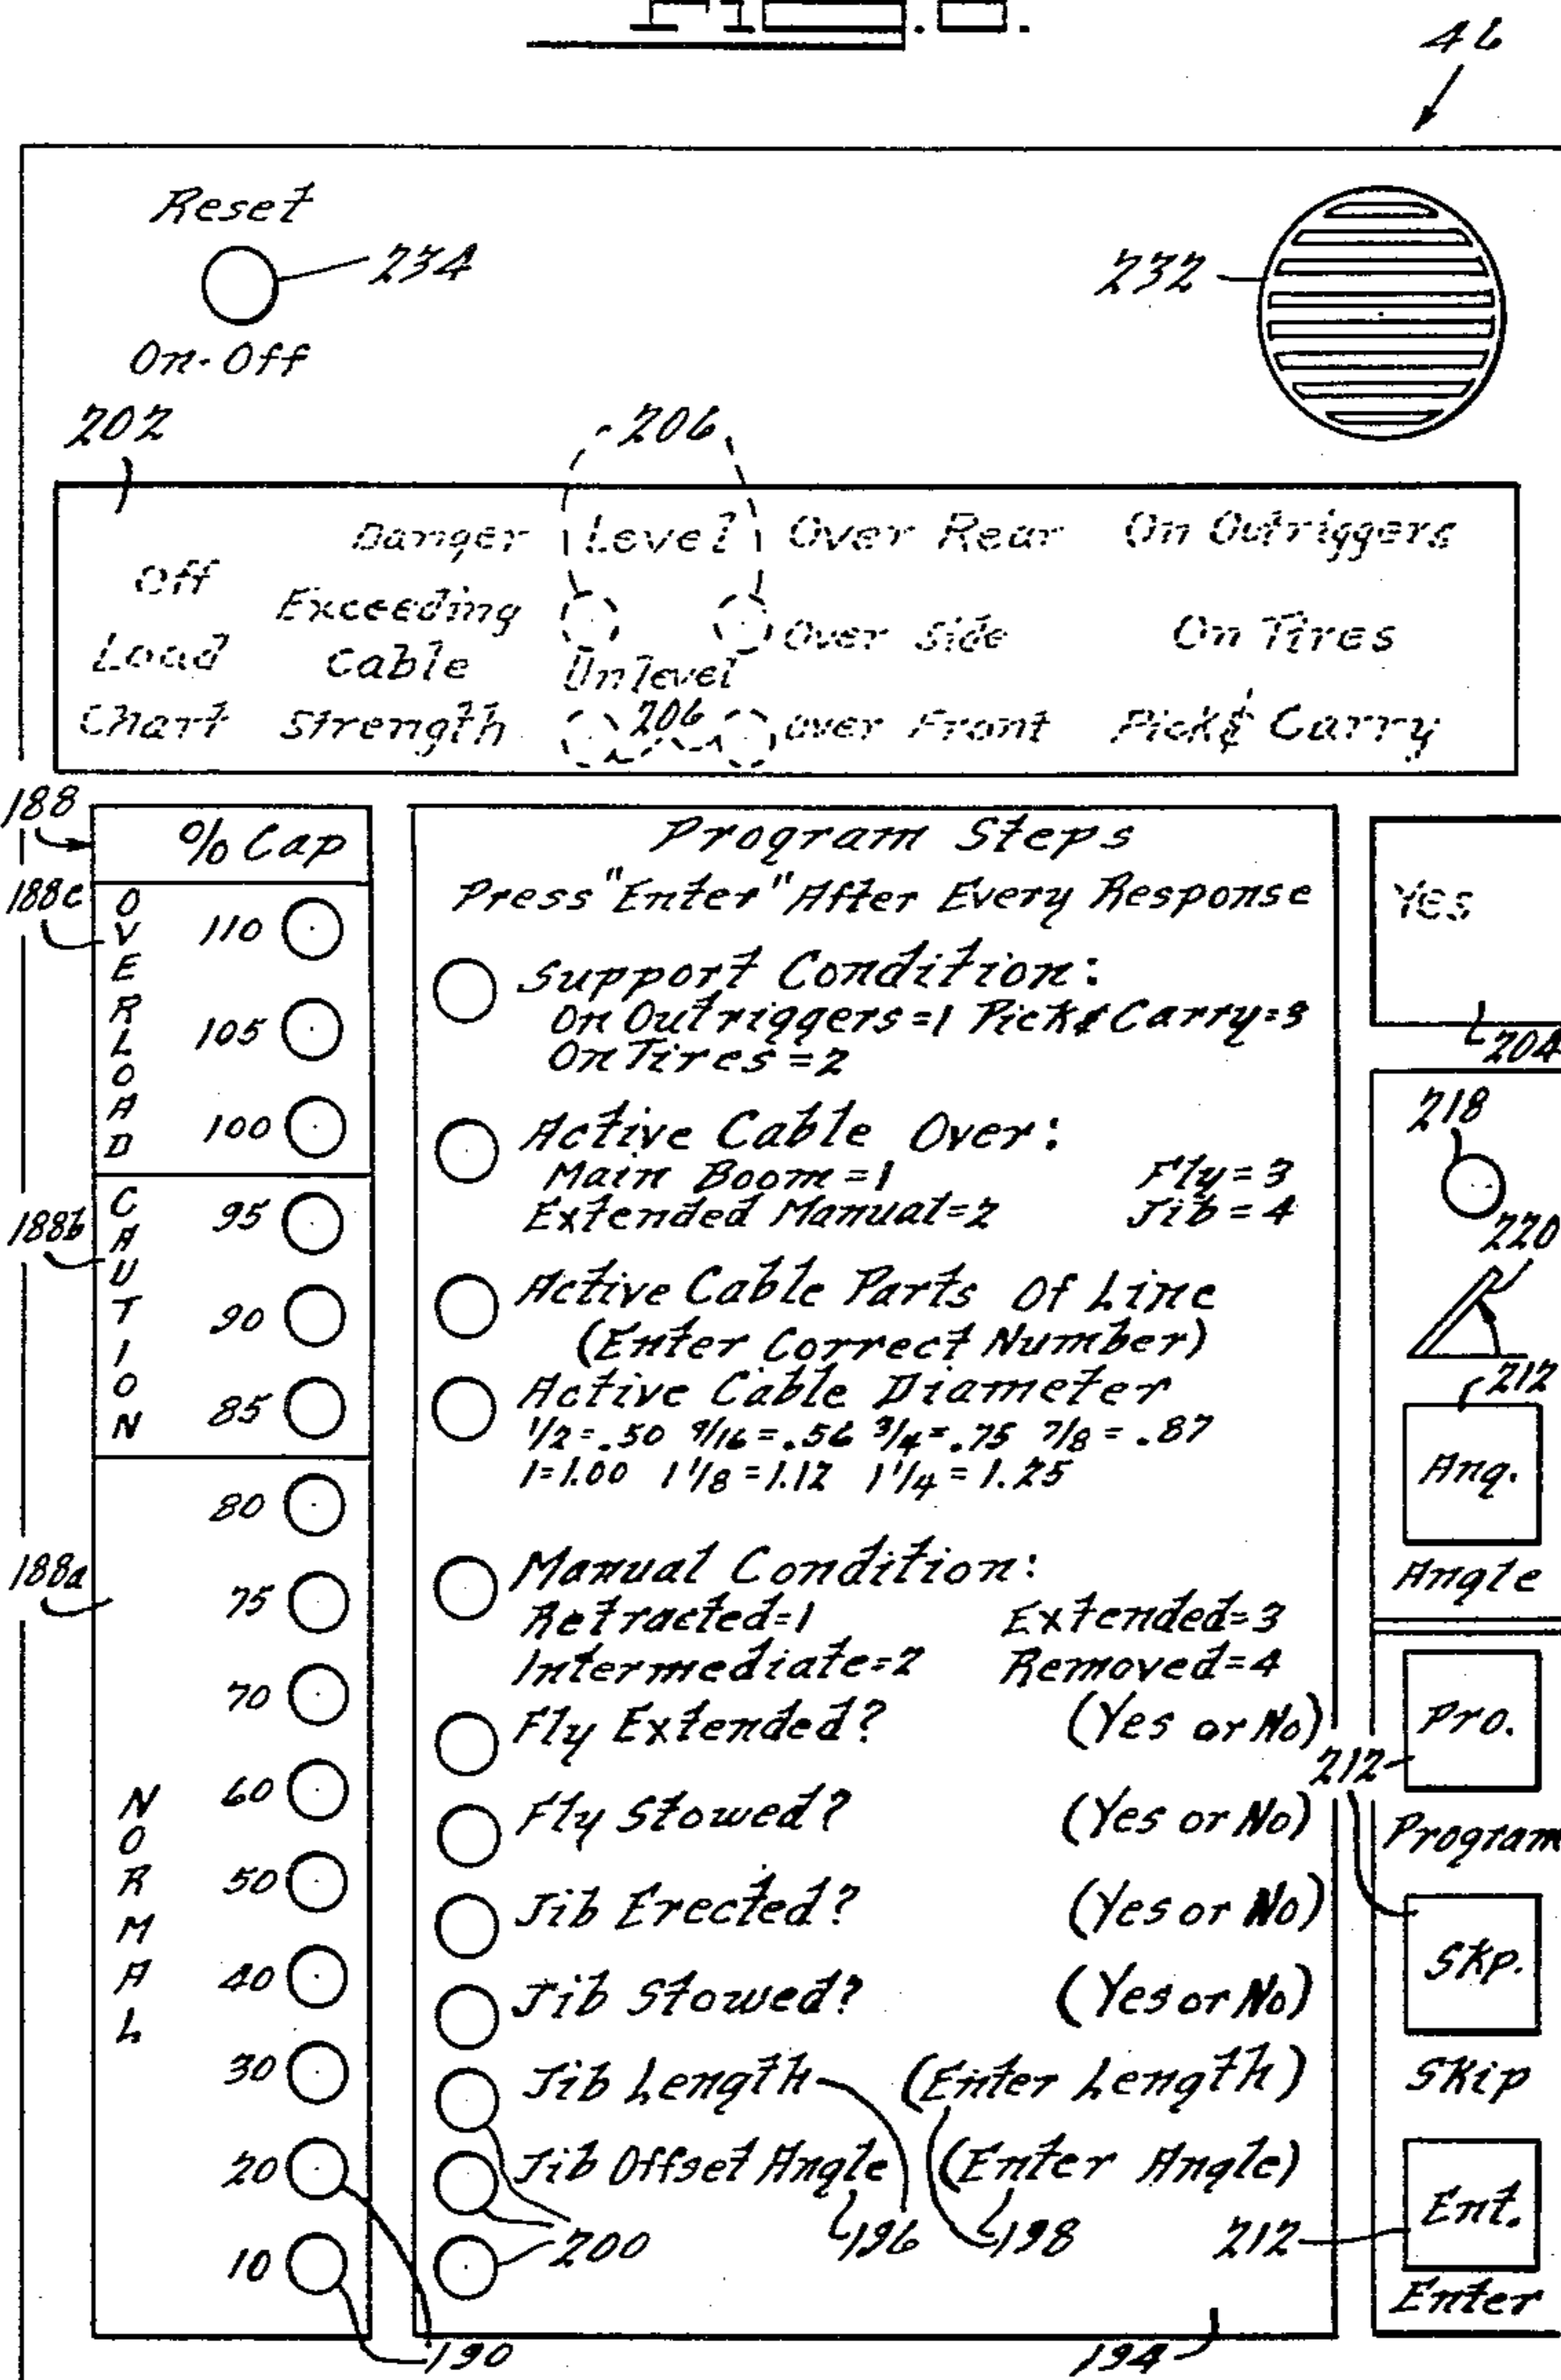 46
Reset
234
232
On-Off
202
206
Off
Load
Chart
Danger
Exceeding
Cable
Strength
Level
Unlevel
206
Over Rear
Over Side
Over Front
On Outriggers
On Tires
Pick & Carry
188
% Cap
188c
OVERLOAD
110
105
100
188b
CAUTION
95
90
85
188a
NORMAL
80
75
70
60
50
40
30
20
10
190
Program Steps
Press "Enter" After Every Response
Support Condition:
On Outriggers=1 Pick & Carry=3
On Tires=2
Active Cable Over:
Main Boom=1 Fly=3
Extended Manual=2 Jib=4
Active Cable Parts Of Line
(Enter Correct Number)
Active Cable Diameter
1/2=.50 9/16=.56 3/4=.75 7/8=.87
1=1.00 1 1/8=1.12 1 1/4=1.25
Manual Condition:
Retracted=1 Extended=3
Intermediate=2 Removed=4
Fly Extended? (Yes or No)
Fly Stowed? (Yes or No)
Jib Erected? (Yes or No)
Jib Stowed? (Yes or No)
Jib Length (Enter Length)
Jib Offset Angle (Enter Angle)
200
196
198
194
Yes
204
218
220
212
Ang.
Angle
Pro.
212
Program
Skp.
Skip
212
Ent.
Enter